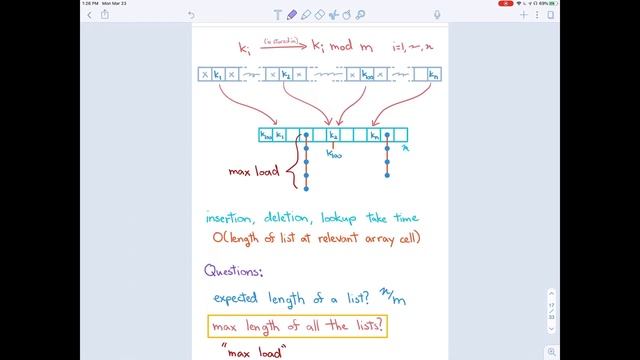 1:26 PM Mon Mar 23
69%
(is stored in)
kᵢ → kᵢ mod m i=1, ~, n
x k₁ x x k₂ x x k₁₀₀ x kₙ
k₁₀₀ k₁ k₂ kₙ n
k₁₀₀
max load
insertion, deletion, lookup take time
O(length of list at relevant array cell)
Questions:
expected length of a list? n/m
max length of all the lists?
"max load"
17
33